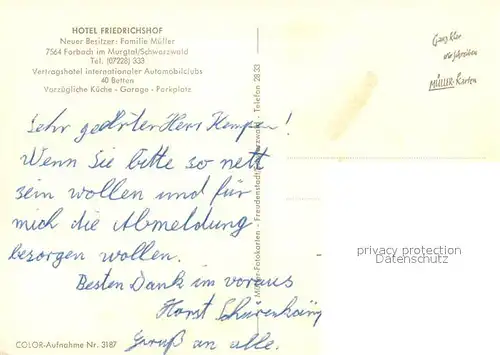 HOTEL FRIEDRICHSHOF
Neuer Besitzer: Familie Müller
7564 Forbach im Murgtal/Schwarzwald
Tel. (07228) 333
Vertragshotel internationaler Automobilclubs
40 Betten
Vorzügliche Küche - Garage - Parkplatz
Sehr geehrter Herr Kempen!
Wenn Sie bitte so nett
sein wollen und für
mich die Abmeldung
besorgen wollen.
Besten Dank im voraus
Horst
Gruß an alle.
COLOR-Aufnahme Nr. 3187
Müller-Fotokarten - Freudenstadt/Schwarzwald - Telefon 28 33
Ganz klar
wir schreiben
MÜLLER-Karten
privacy protection
Datenschutz